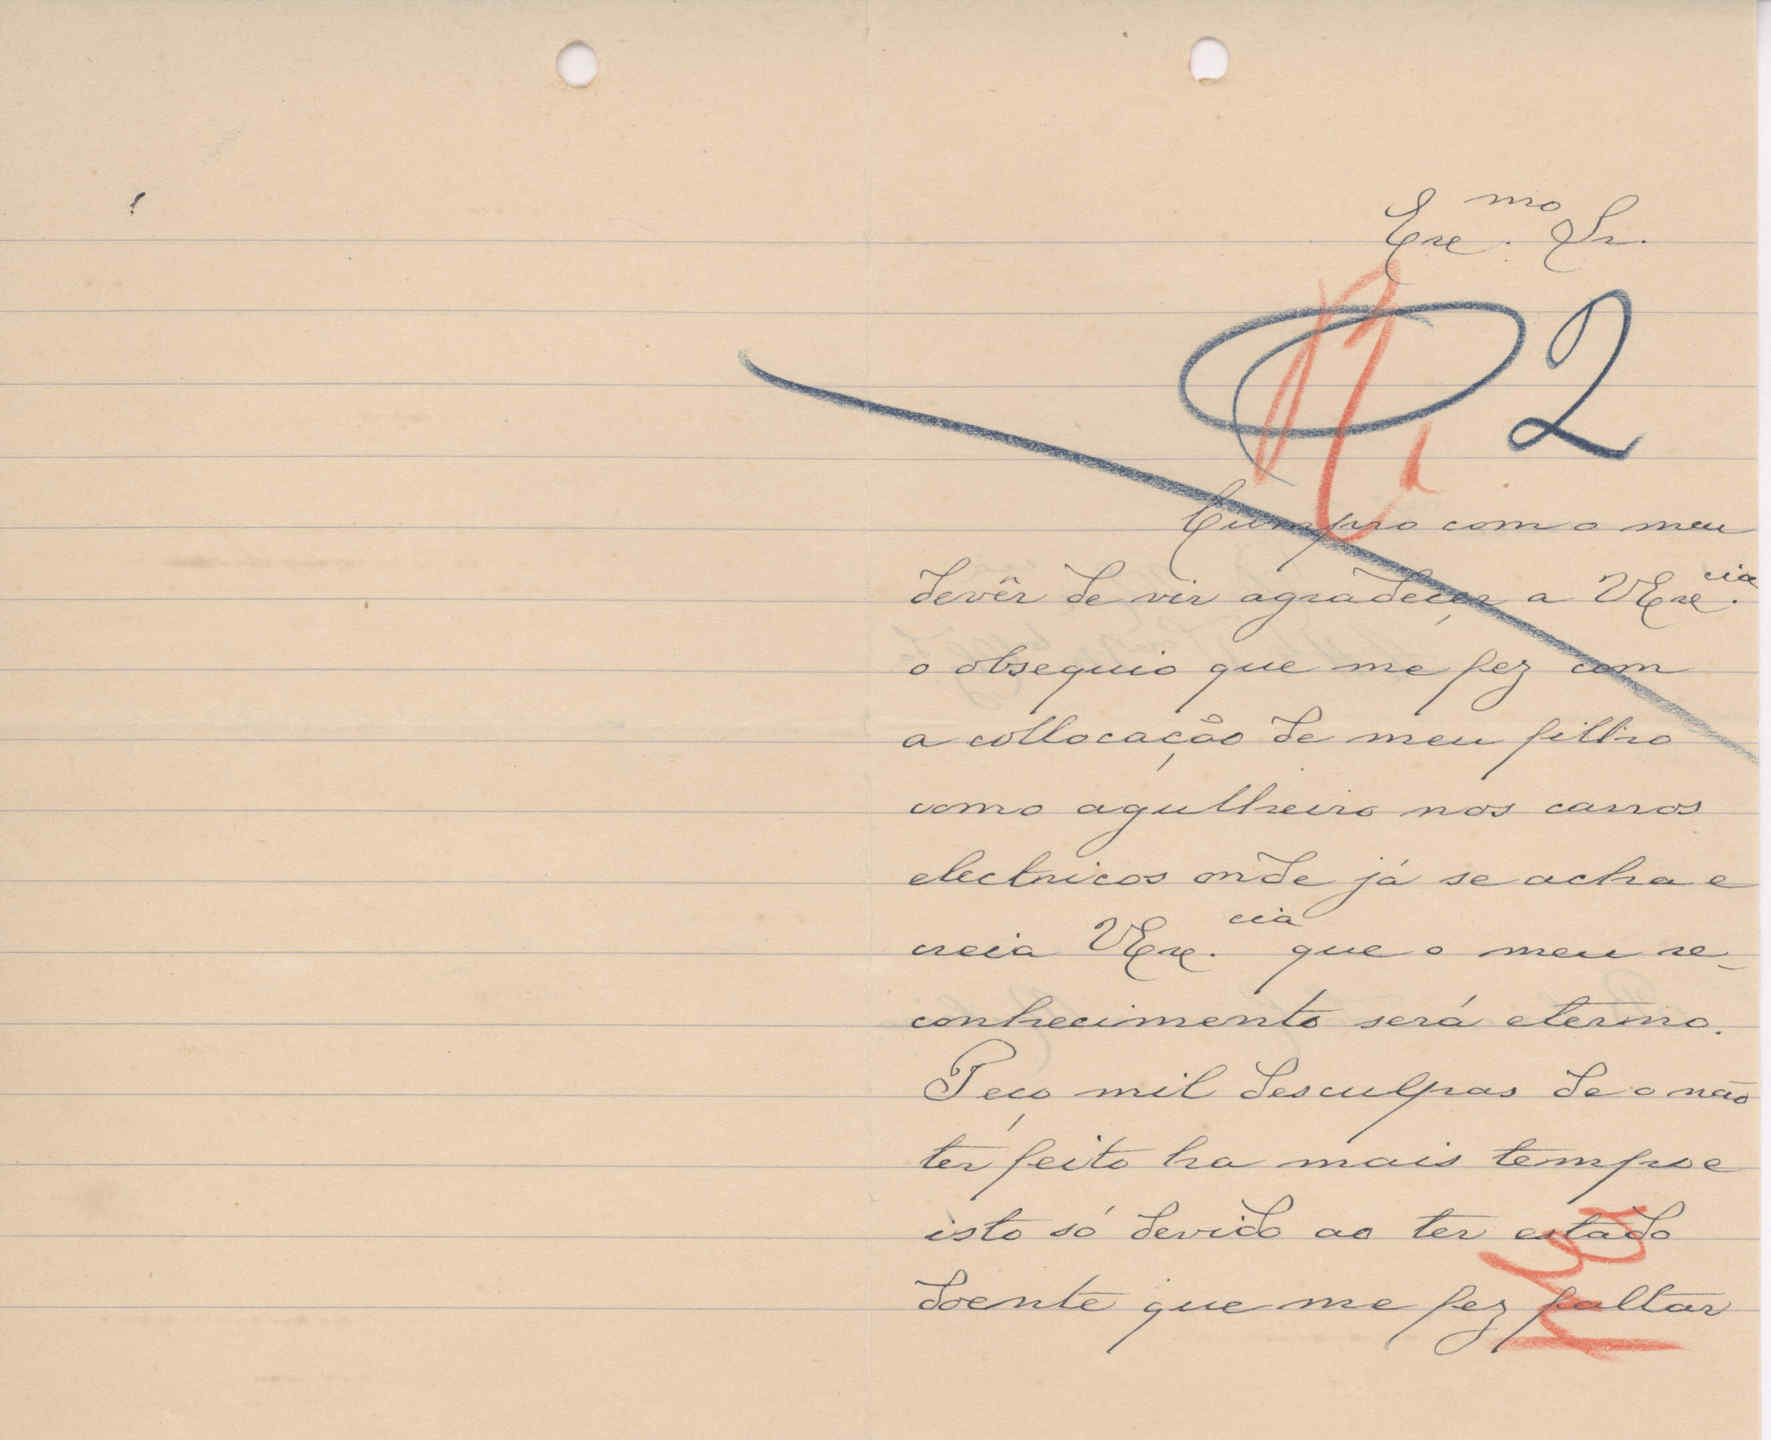 Exc.mo Sr.
2
Cumpro com o meu
devêr de vir agradeçer a VExc.cia
o obsequio que me fez com
a collocação de meu filho
como agulheiro nos carros
electricos onde já se acha e
creia VExc.cia que o meu re-
conhecimento será eterno.
Peço mil desculpas de o não
ter feito ha mais tempo e
isto só devido ao ter estado
doente que me fez faltar